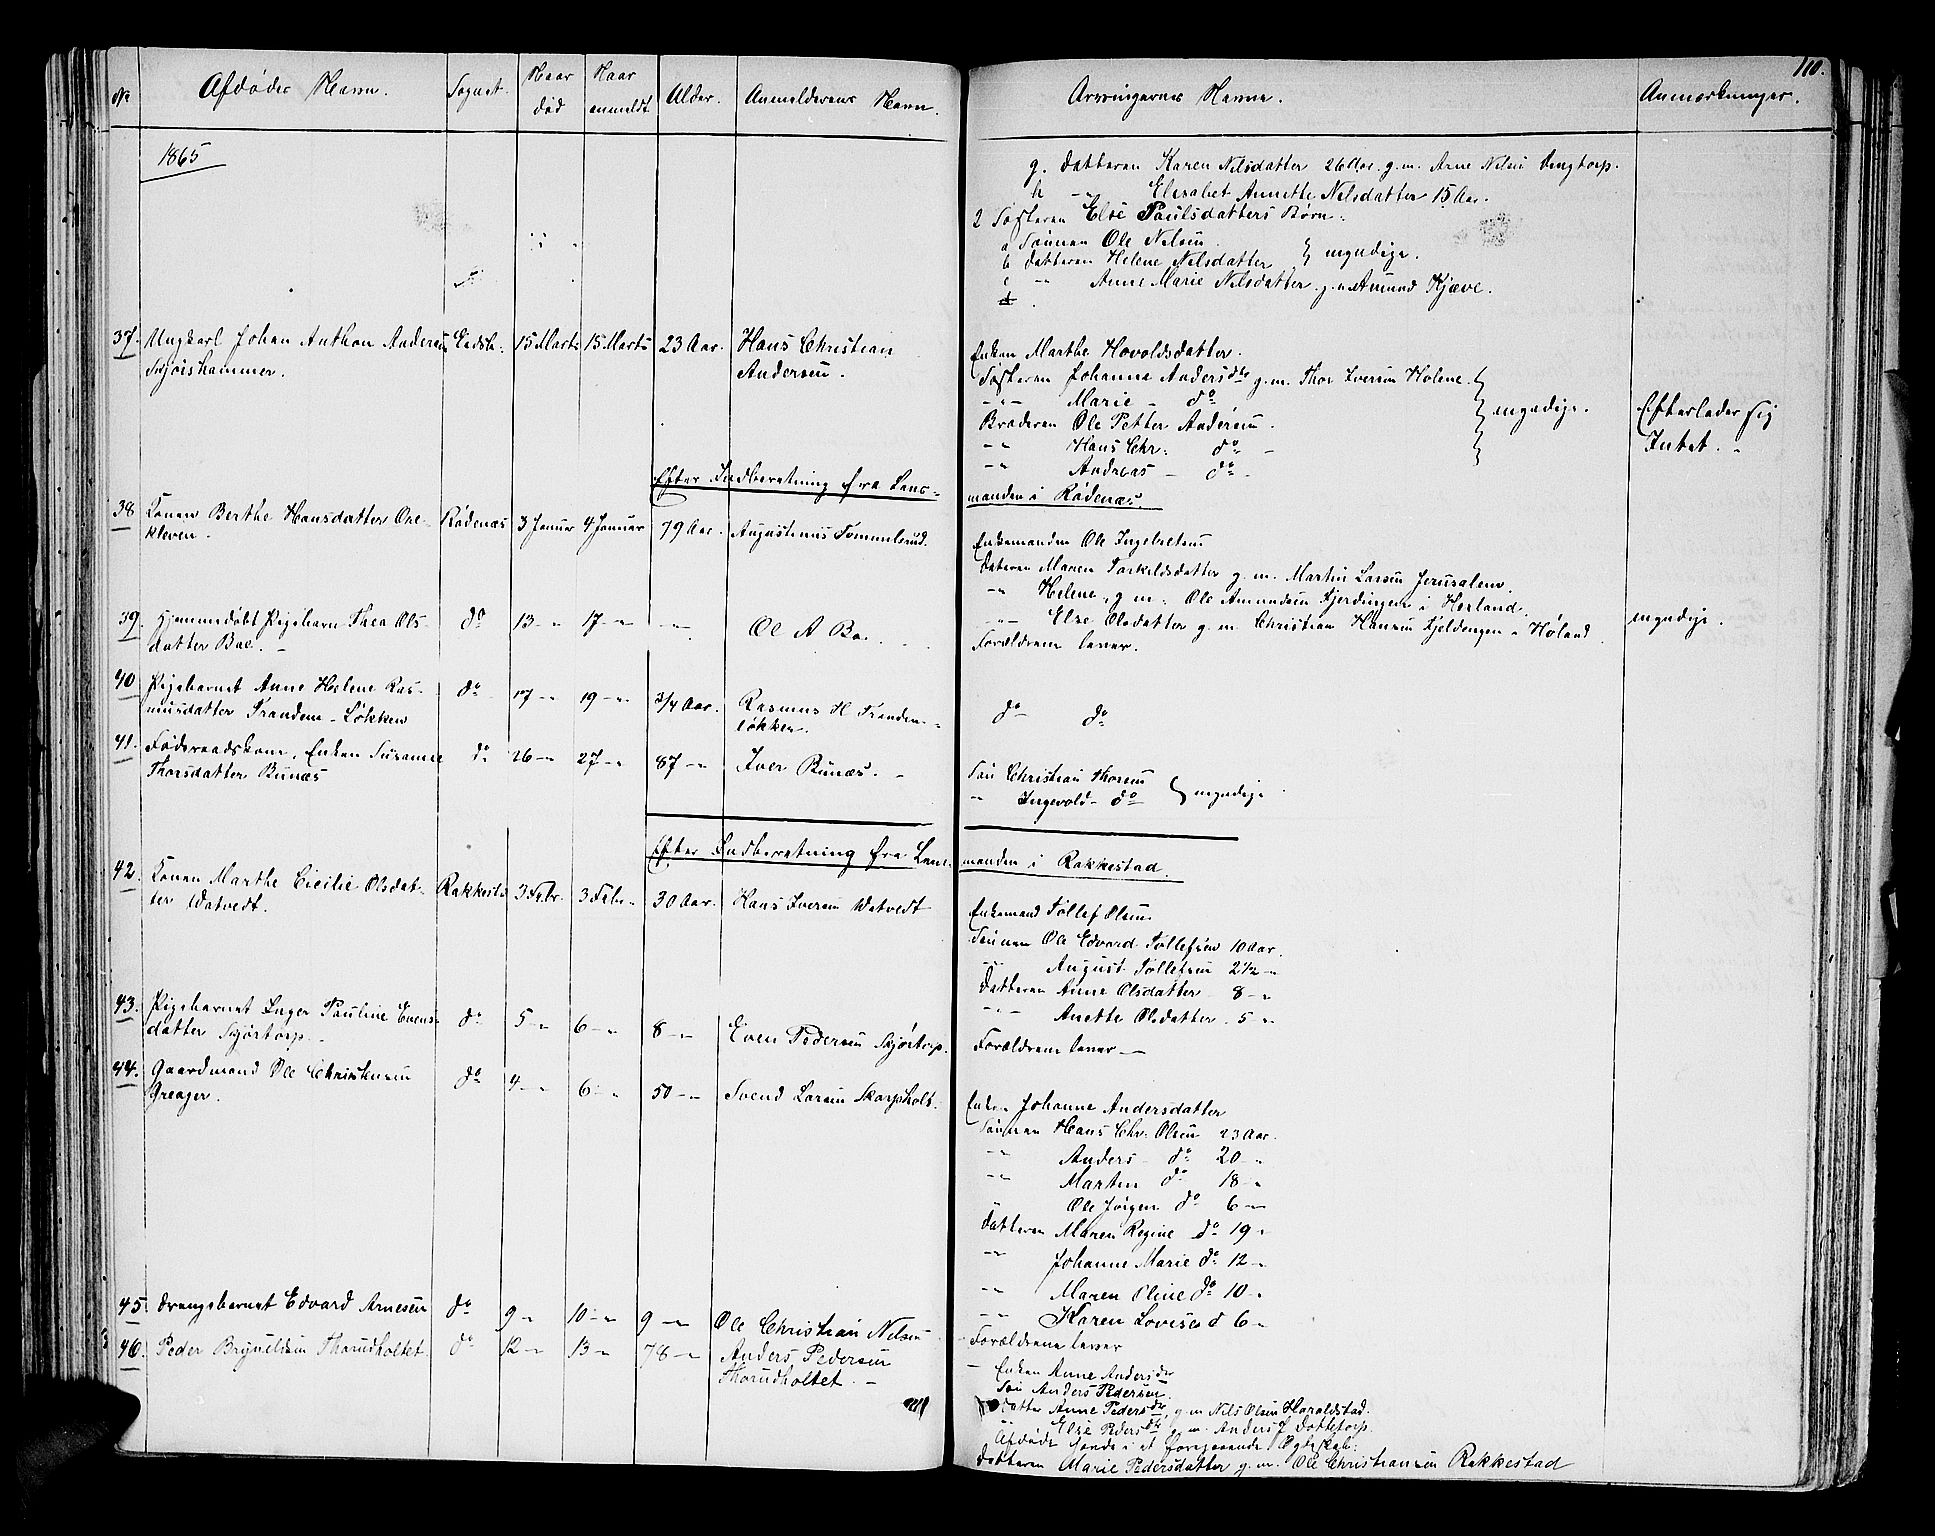 110.
No Afdødes Navn. Sognet. Naar død Naar anmeldt Alder. Anmelderens Navn. Arvingernes Navne. Anmærkninger.
1865
g. Datteren Karen Nilsdatter 26 Aar. g. m. Arne Nilsen
h -"- Elisabet Annette Nilsdatter 15 Aar.
2 Søsteren Else Paulsdatters Børn.
a Sønnen Ole Nilsen
b Datteren Helene Nilsdatter } myndige.
c -"- Anne Marie Nilsdatter g. m. Amund Kjæve.
d
37. Ungkarl Johan Anthon Andersen Eidsb: 15 Marts 15 Marts 23 Aar. Hans Christian
Skjøishammer. Andersen.
Enken Marthe Hovoldsdatter.
Søsteren Johanne Andersdtr g. m. Thor Iversen Holene.
-"- Marie - do
Broderen Ole Petter Andersen. } myndige. Efterlader sig
-"- Hans Chr: do - Intet.
-"- Andreas - do -
Efter Indberetning fra Lens-
manden i Rødenæs.
38 Konen Berthe Hansdatter Ore- Rødenæs 3 Januar 4 Januar 79 Aar. Augustinus Tommelsrud.
kleven.
Enkemanden Ole Ingebretsen
Datteren Maren Torkeldsdatter g. m. Martin Larsen Jerusalem.
-"- Helene, g. m. Ole Amundsen Fjerdingen i Herland.
-"- Else Olsdatter g. m. Christian Hansen Kjeldengen i Høland. myndige.
39. Hjemmedøbt Pigebarn Thea Ols- do 13 -"- 17 -"- -"- Ole A Boe.
datter Boe. -
Forældrene lever.
40 Pigebarnet Anne Helene Ras- do 17 -"- 19 -"- 3/4 Aar. Rasmus H Tranden-
musdatter Trandem-Løkken løkken.
do do
41. Føderaadskone, Enken Susanne do 26 -"- 27 -"- 87 -"- Iver Bunæs. -
Thorsdatter Bunæs
Søn Christian Thoresen
-"- Ingevold - do } myndige
Efter Indberetning fra Lens-
manden i Rakkestad.
42. Konen Marthe Cicilie Olsdat- Rakkest: 3 Febr. 3 Febr. 30 Aar. Hans Iversen Watvedt
ter Watvedt.
Enkemand Tollef Olsen
Sønnen Ole Edvard Tollefsen 10 Aar.
-"- August Tollefsen 2 1/2 -"-
Datteren Anne Olsdatter 8 -"-
-"- Anette Olsdatter. 5 -"-
43. Pigebarnet Inger Pauline Evens- do 5 -"- 6 -"- 8 -"- Even Pedersen Skjørtorp.
datter Skjørtorp. -
Forældrene lever -
44. Gaardmand Ole Christensen do 4 -"- 6 -"- 50 -"- Svend Larsen Skarpholt.
Greager.
Enken Johanne Andersdatter
Sønnen Hans Chr: Olsen 23 Aar.
-"- Anders - do 20 -"-
-"- Martin do 18 -"-
" Ole Jørgen do 6 -"-
Datteren Maren Regine do 19 "
-"- Johanne Marie do 12 -"-
-"- Maren Oline do 10 -"-
-"- Karen Lovise d 6 -"-
45. Drengebarnet Edvard Arnesen do 9 -"- 10 -"- 9 -"- Ole Christian Nilsen
Forældrene lever
46. Peder Brynildsen Thorudholtet. do 12 -"- 13 -"- 78 -"- Anders Pedersen
Thorudholtet. -
- Enken Anne Andersdtr
Søn Anders Pedersen.
Datter Anne Pedersdtr, g. m. Nils Olsen Haraldstad.
" Else Pedersdtr g. m. Anders J Dottetorp.
Afdøde sønds i et foregaaende Ægteskab.
Datteren Marie Pedersdatter g. m. Ole Christiansen Rakkestad